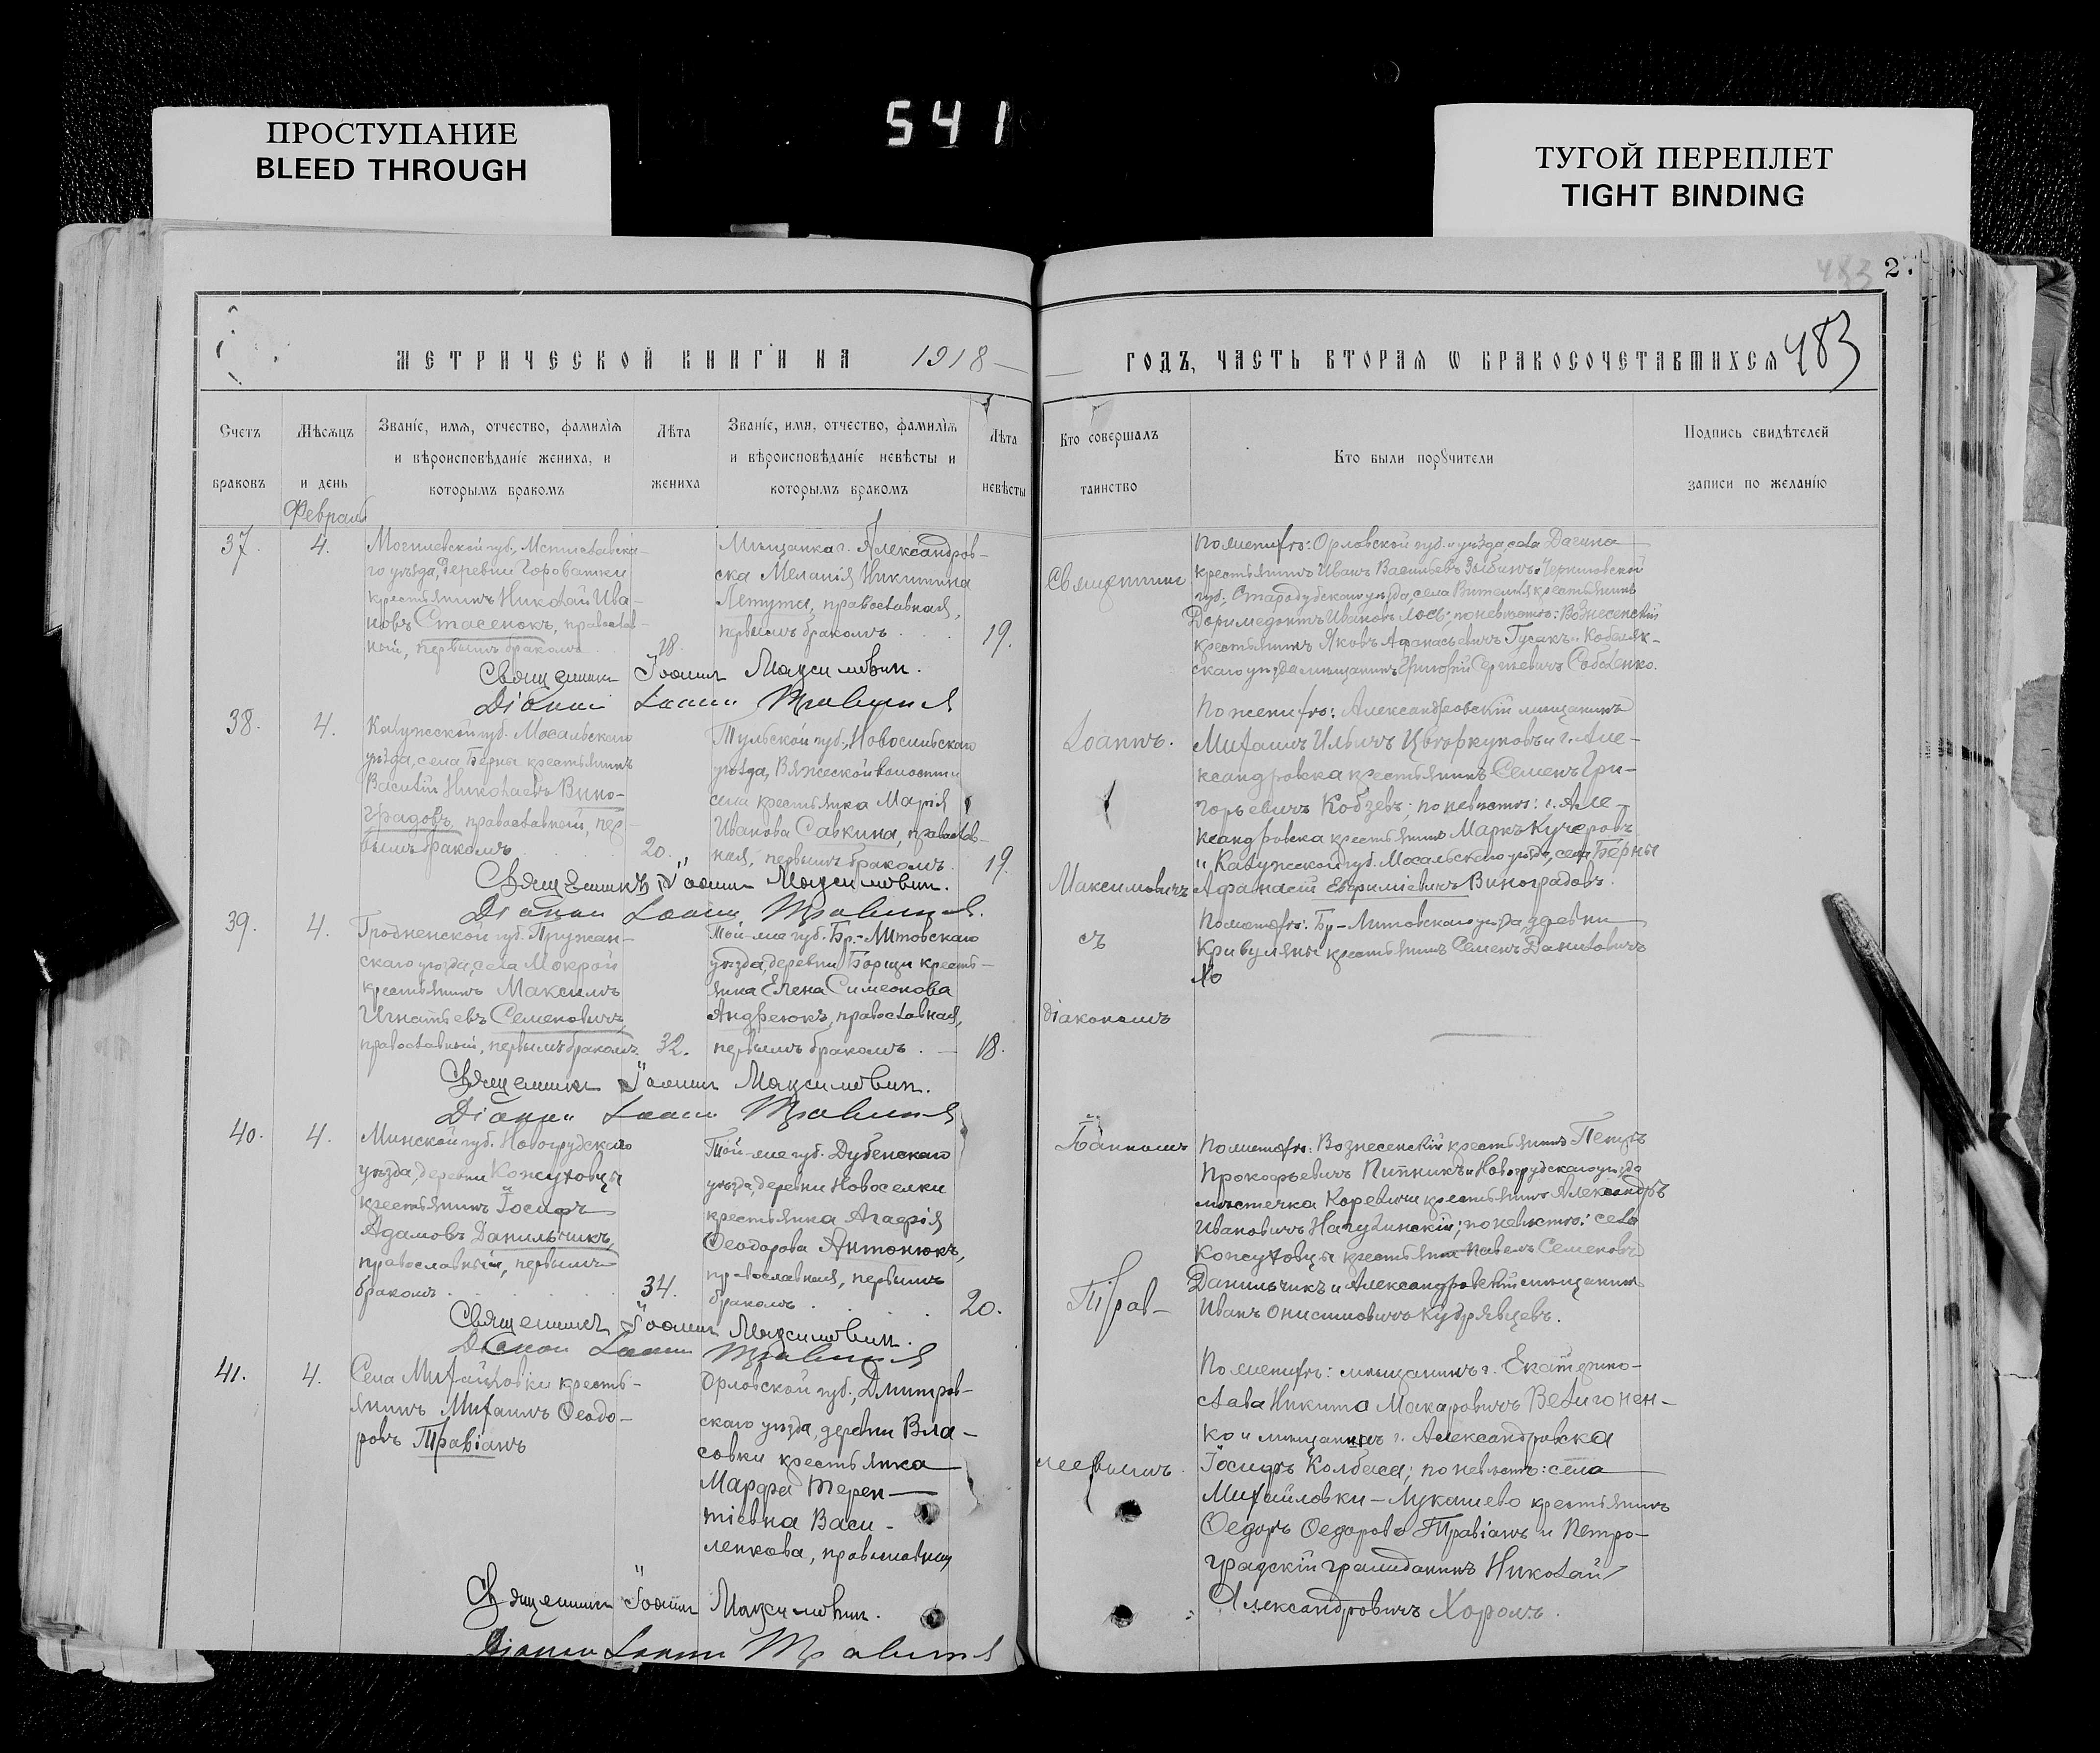 ПРОСТУПАНИЕ
BLEED THROUGH
541
ТУГОЙ ПЕРЕПЛЕТ
TIGHT BINDING
483
27
МЕТРИЧЕСКОЙ КНИГИ НА 1918
ГОДЪ, ЧАСТЬ ВТОРАЯ Ѡ БРАКОСОЧЕТАВШИХСЯ 483
Счетъ браковъ
Мѣсяцъ и день
Званіе, имя, отчество, фамилія
и вѣроисповѣданіе жениха, и
которымъ бракомъ
Лѣта жениха
Званіе, имя, отчество, фамилія
и вѣроисповѣданіе невѣсты и
которымъ бракомъ
Лѣта невѣсты
Кто совершалъ
таинство
Кто были порꙋчители
Подпись свидѣтелей
записи по желанію
Февраль
37. 4.
Могилевской губ., Мстиславска-
го уѣзда, деревни Горбатки
крестьянинъ Николай Ива-
новъ Стасенокъ, православ-
ный, первымъ бракомъ 18.
Мѣщанка г. Александров-
ска Меланія Никитина
Летута, православная,
первымъ бракомъ 19.
Священникъ Іоаннъ Максимовичъ.
Діаконъ Іоаннъ Травинскій
38. 4.
Калужской губ. Мосальскаго
уѣзда, села Берны крестьянинъ
Василій Николаевъ Вино-
градовъ, православный, пер-
вымъ бракомъ 20.
Тульской губ., Новосильскаго
уѣзда, Вяжеской волости
села крестьянка Марія
Иванова Савкина, православ-
ная, первымъ бракомъ. 19.
Священникъ Іоаннъ Максимовичъ.
39. 4.
Гродненской губ. Пружан-
скаго уѣзда, села Мокрой
крестьянинъ Максимъ
Игнатьевъ Семеновичъ,
православный, первымъ бракомъ 32.
Той-же губ. Бр.-Литовскаго
уѣзда, деревни Борщи кресть-
янка Елена Симеонова
Андреюкъ, православная,
первымъ бракомъ. 18.
Священникъ Іоаннъ Максимовичъ.
40. 4.
Минской губ. Новогрудскаго
уѣзда, деревни Кожуховцы
крестьянинъ Іосифъ
Адамовъ Данильчикъ,
православный, первымъ
бракомъ 34.
Той-же губ. Дубенскаго
уѣзда, деревни Новоселки
крестьянка Агафія
Ѳеодорова Антонюкъ,
православная, первымъ
бракомъ 20.
Священникъ Іоаннъ Максимовичъ.
41. 4.
Села Михайловки кресть-
янинъ Михаилъ Ѳеодо-
ровъ Травіанъ
Орловской губ., Дмитров-
скаго уѣзда, деревни Вла-
совки крестьянка
Марфа Терен-
тіевна Васи-
ленкова, православная
Священникъ Іоаннъ Максимовичъ.
Священникъ
Іоаннъ.
Максимовичъ
съ
діакономъ
Іоанномъ
Трав-
По женихѣ: Орловской губ. и уѣзда, села
крестьянинъ Иванъ Васильевъ Зыбинъ и Черниговской
губ., Стародубскаго уѣзда, села крестьянинъ
Доримедонтъ Ивановъ Лось; по невѣстѣ: Вознесенскій
крестьянинъ Яковъ Афанасьевичъ Гусакъ и Кобеляк-
скаго уѣзда мѣщанинъ Григорій Сергѣевичъ Соболенко.
По женихѣ: Александровскій мѣщанинъ
Михаилъ Ильичъ и г. Але-
ксандровска крестьянинъ Семенъ Гри-
горьевичъ Кобзевъ; по невѣстѣ: г. Але-
ксандровска крестьянинъ Маркъ Кучеровъ
и Калужской губ. Мосальскаго уѣзда, села Берны
Афанасій Евфиміевичъ Виноградовъ.
По женихѣ: Бр-Литовскаго уѣзда, деревни
Кривуляны крестьянинъ Семенъ Даниловичъ
Хо
По женихѣ: Вознесенскій крестьянинъ Петръ
Прокофьевичъ Питникъ и Новогрудскаго уѣзда
мѣстечка Кореличи крестьянинъ Александръ
Ивановичъ; по невѣстѣ: села
Кожуховцы крестьянинъ Павелъ Семеновъ
Данильчикъ и Александровскій мѣщанинъ
Иванъ Онисимовичъ Кудрявцевъ.
По женихѣ: мѣщанинъ г. Екатерино-
слава Никита Макаровичъ Велигонен-
ко и мѣщанинъ г. Александровска
Іосифъ Колбаса; по невѣстѣ: села
Михайловки-Лукашево крестьянинъ
Ѳедоръ Ѳедоровъ Травіанъ и Петро-
градскій гражданинъ Николай
Александровичъ Хоромъ.